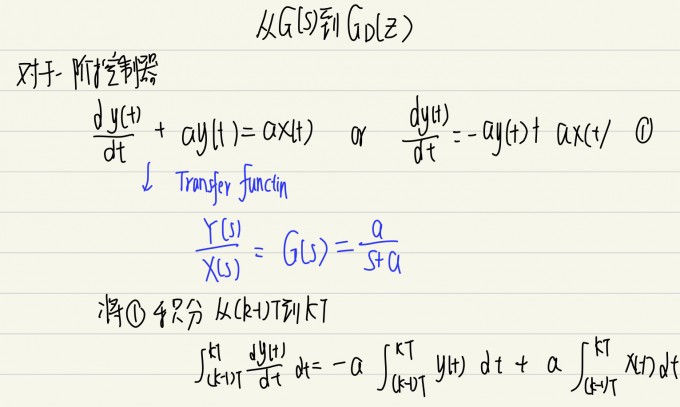 从G(s)到GD(z)
对于一阶控制器
dy(t)/dt + ay(t) = ax(t) or dy(t)/dt = -ay(t) + ax(t) ①
↓ Transfer functin
Y(s)/X(s) = G(s) = a/(s+a)
将①积分 从(k-1)T到kT
∫_{(k-1)T}^{kT} dy(t)/dt dt = -a ∫_{(k-1)T}^{kT} y(t) dt + a ∫_{(k-1)T}^{kT} x(t) dt